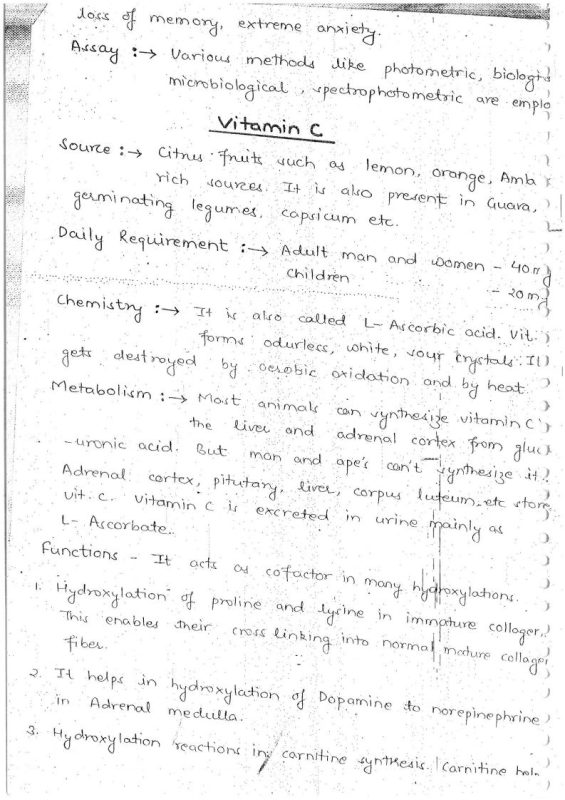 loss of memory, extreme anxiety.
Assay :→ Various methods like photometric, biologi
microbiological, spectrophotometric are emplo
Vitamin C
Source :→ Citrus fruits such as lemon, orange, Amla
rich sources. It is also present in Guava,
germinating legumes, capsicum etc.
Daily Requirement :→ Adult man and women - 40 mg
children - 20 mg
Chemistry :→ It is also called L- Ascorbic acid. Vit.
forms odurless, white, sour crystals. It
gets destroyed by aerobic oxidation and by heat
Metabolism :→ Most animals can synthesize vitamin C
the liver and adrenal cortex from gluc
-uronic acid. But man and ape's can't synthesize it.
Adrenal cortex, pitutary, liver, corpus luteum, etc store
vit. C. Vitamin C is excreted in urine mainly as
L- Ascorbate.
Functions - It acts as cofactor in many hydroxylations.
1. Hydroxylation of proline and lysine in immature collagen.
This enables their cross linking into normal mature collagen
fiber.
2. It helps in hydroxylation of Dopamine to norepinephrine
in Adrenal medulla.
3. Hydroxylation reactions in carnitine synthesis. Carnitine